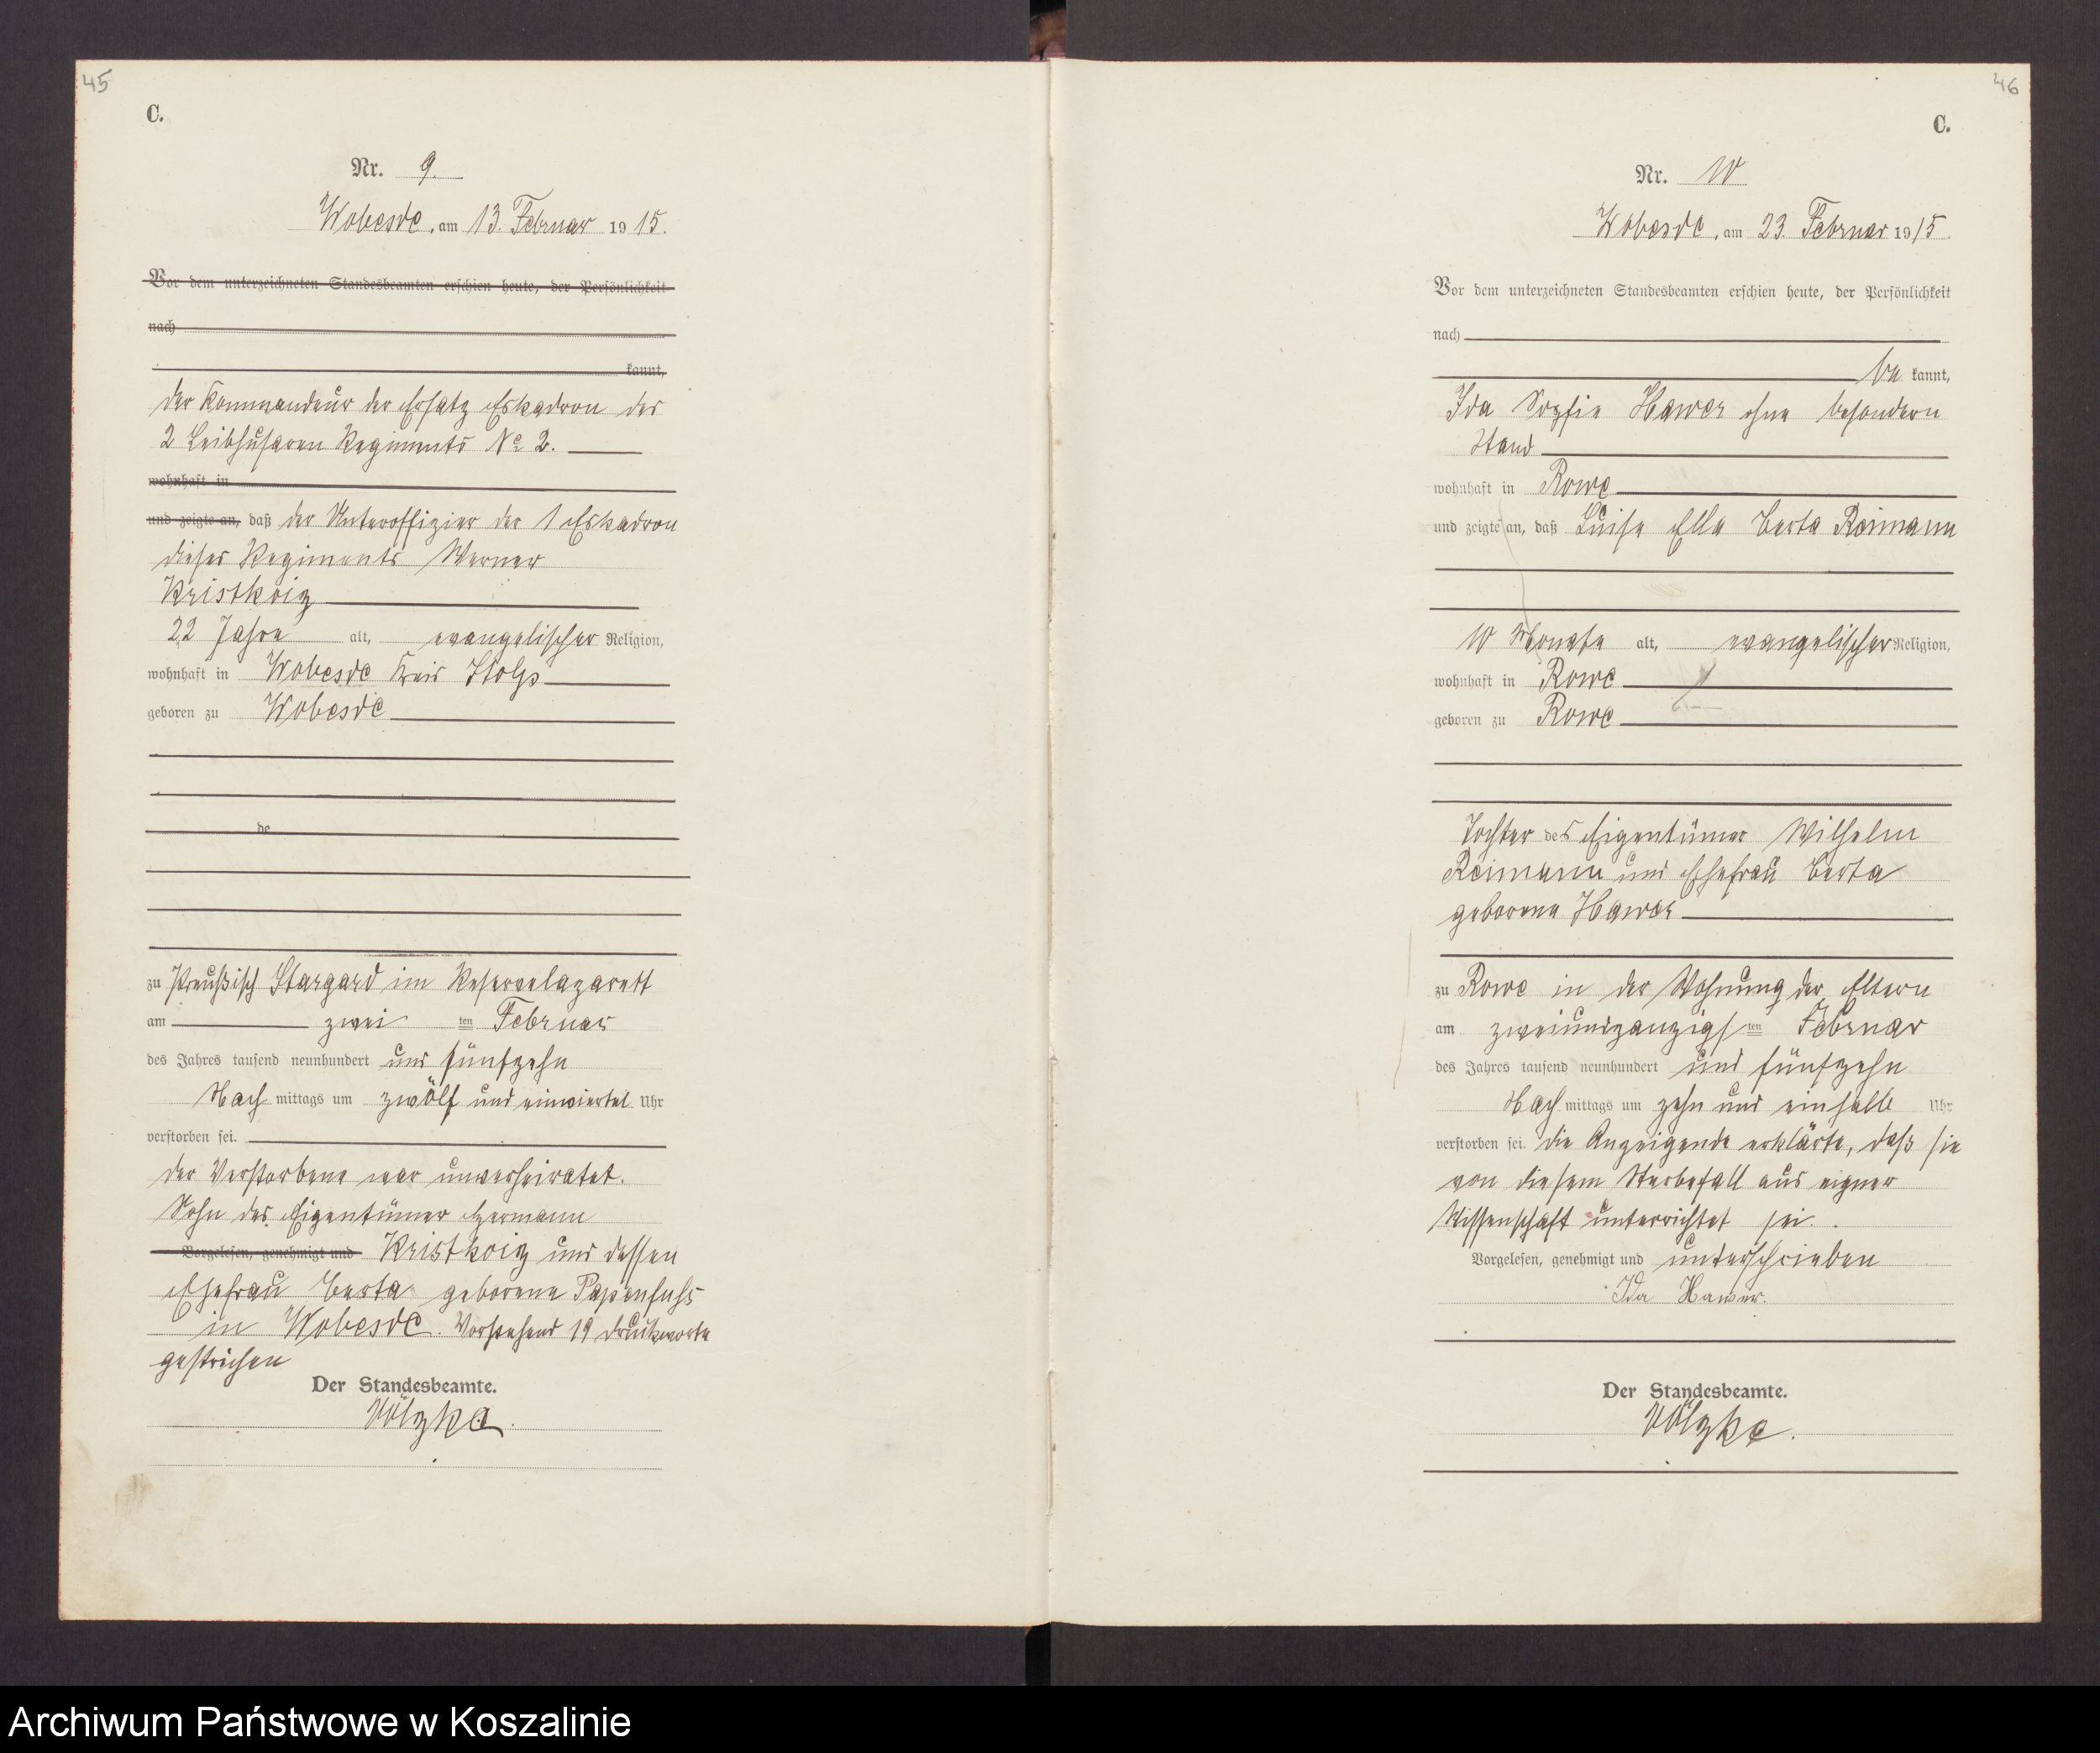 45
C.
Nr. 9.
Wobesde, am 13. Februar 1915.
Vor dem unterzeichneten Standesbeamten erschien heute, der Persönlichkeit
nach
kannt,
der Kommandeur der Ersatz Eskadron des
2 Leibhusaren Regiments No 2.
wohnhaft in
und zeigte an, daß der Unteroffizier der 1 Eskadron
dieses Regiments Werner
Kristkoiz
22 Jahre alt, evangelischer Religion,
wohnhaft in Wobesde Kreis Stolp
geboren zu Wobesde
de
zu Preußisch Stargard im Reservelazarett
am zwei ten Februar
des Jahres tausend neunhundert und fünfzehn
Nach mittags um zwölf und einviertel Uhr
verstorben sei.
der Verstorbene war unverheiratet.
Sohn des Eigentümer Hermann
Vorgelesen, genehmigt und Kristkoiz und dessen
Ehefrau Berta geborene Papenfuhs
in Wobesde. Vorstehend 19 Druckworte
gestrichen
Der Standesbeamte.
Völzke.
46
C.
Nr. 10
Wobesde, am 23. Februar 1915.
Vor dem unterzeichneten Standesbeamten erschien heute, der Persönlichkeit
nach
be kannt,
Ida Sophie Hawer ohne besondern
Stand
wohnhaft in Rowe
und zeigte an, daß Luise Ella Berta Reimann
10 Monate alt, evangelischer Religion,
wohnhaft in Rowe
geboren zu Rowe
Tochter des Eigentümer Wilhelm
Reimann und Ehefrau Berta
geborene Hawer
zu Rowe in der Wohnung der Eltern
am zweiundzanzigs ten Februar
des Jahres tausend neunhundert und fünfzehn
Nach mittags um zehn und einhalb Uhr
verstorben sei. die Anzeigende erklärte, daß sie
von diesem Sterbefall aus eigner
Wissenschaft unterrichtet sei.
Vorgelesen, genehmigt und unterschrieben
Ida Hawer.
Der Standesbeamte.
Völzke.
Archiwum Państwowe w Koszalinie